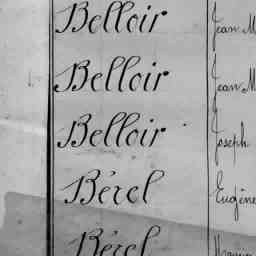 Belloir Jean M
Belloir Jean M
Belloir Joseph
Bérel Eugène
Bérel